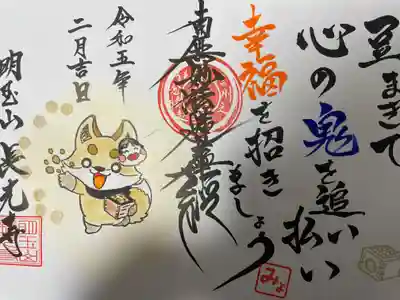 豆まきで
心の鬼を追い払い
幸福を招きましょう
南無妙法蓮華経
令和五年
二月吉日
明玉山 長光寺
みょ